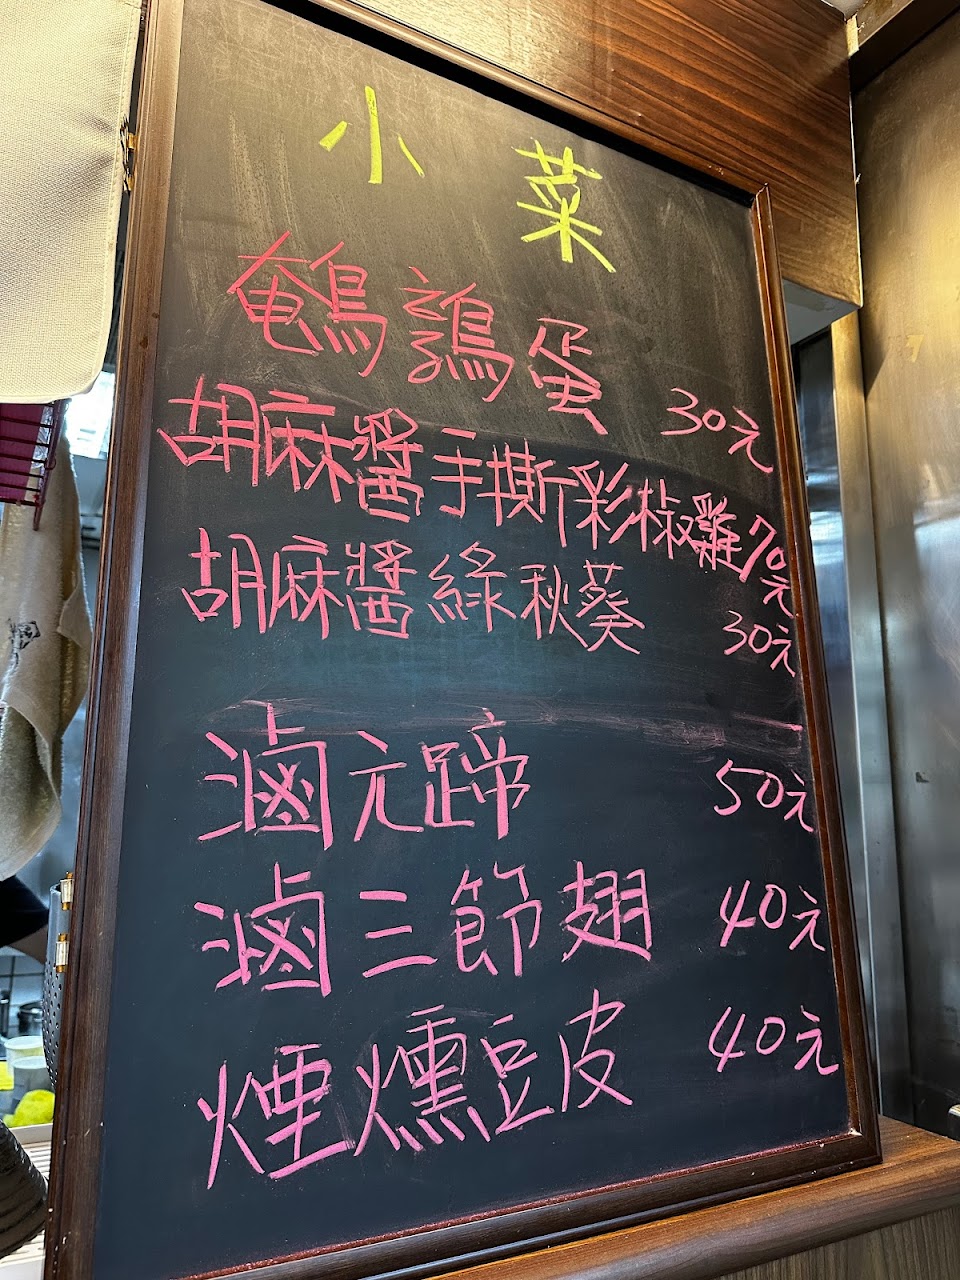 小菜
鵪鶉蛋 30元
胡麻醬手撕彩椒雞70元
胡麻醬綠秋葵 30元
滷元蹄 50元
滷三節翅 40元
煙燻豆皮 40元